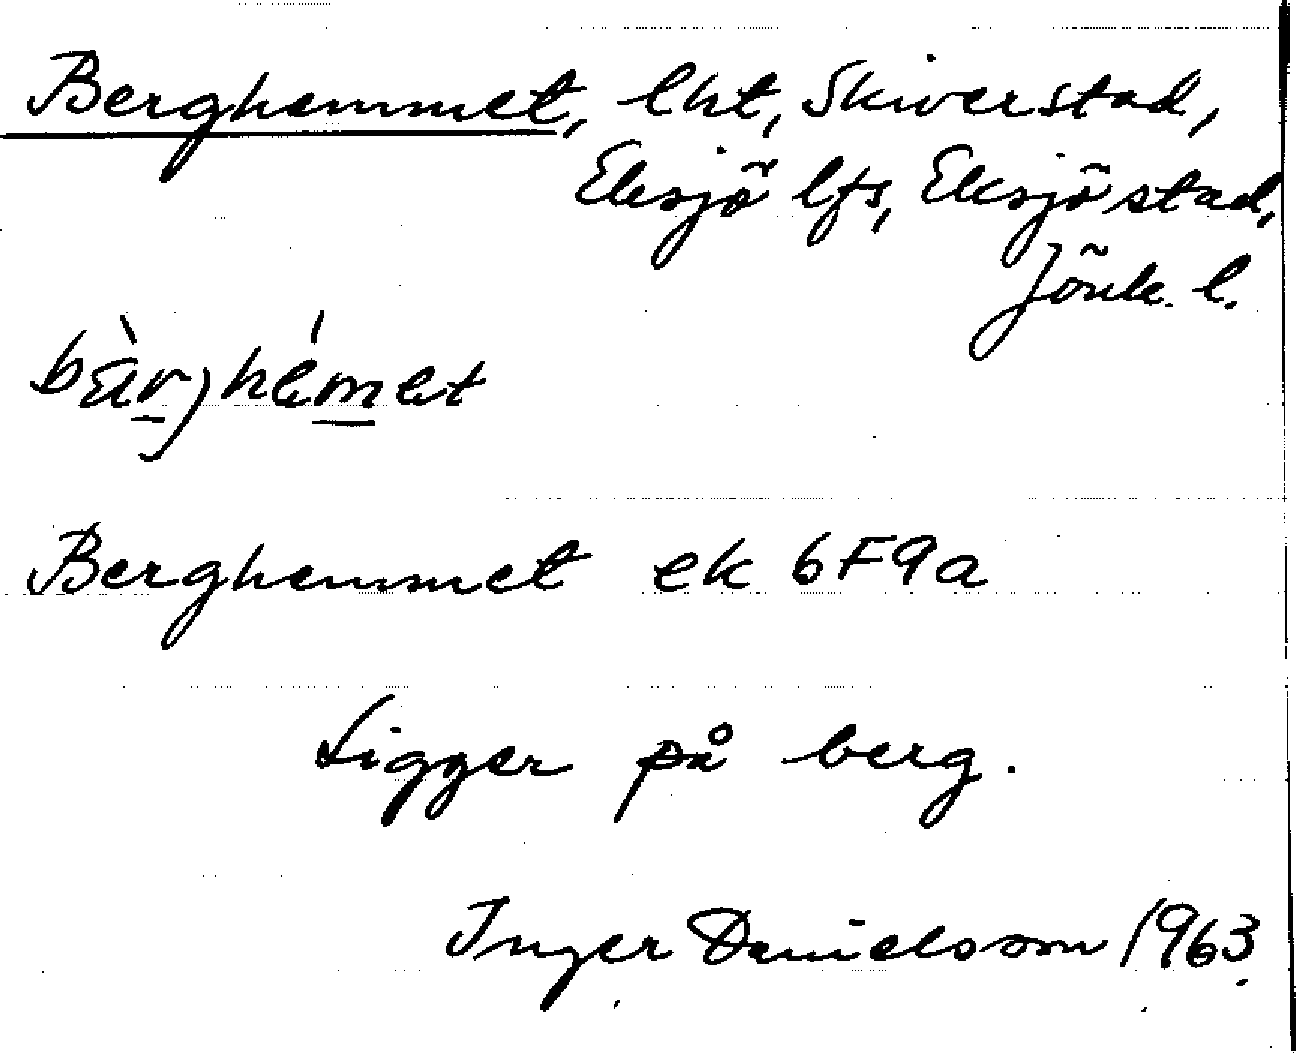 Berghemmet, lht, Skiverstad,
Eksjö lfs, Eksjö stad,
Jönk. l.
bä̀rjhémet
Berghemmet ek 6F9a
Ligger på berg.
Inger Danielsson 1963.